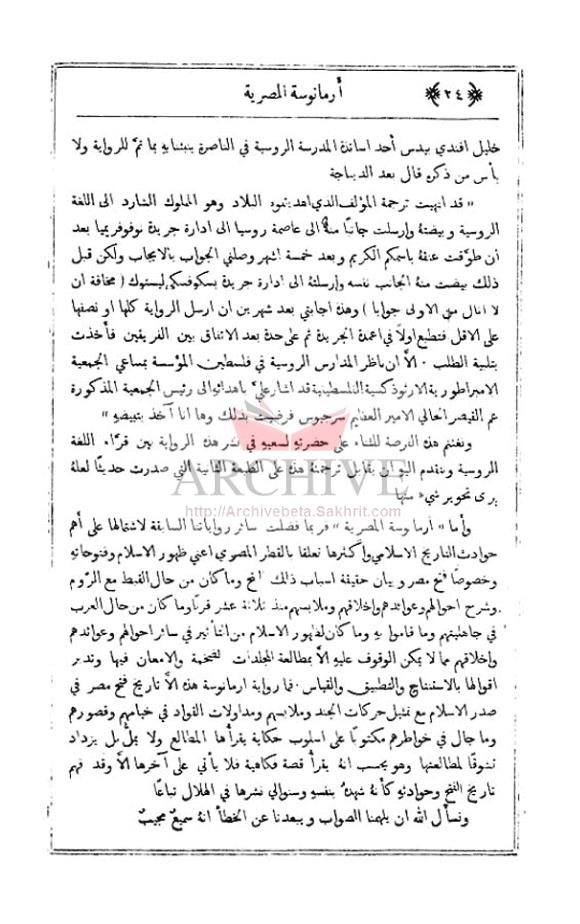 ﴿ ٢٤ ﴾
أرمانوسة المصرية
خليل افندي بيدس أحد اساتذة المدرسة الروسية في الناصرة ينبئنا به بما تمَّ للرواية ولا
بأس من ذكره قال بعد الديباجة
« قد انهيت ترجمة المؤلف الذي اهديتموه البلاد وهو المملوك الشارد الى اللغة
الروسية وبيضتهُ وارسلت جانبًا منهُ الى عاصمة روسيا الى ادارة جريدة نوفوفريميا بعد
ان طوَّقت عنقهُ باسمكم الكريم وبعد خمسة اشهر وصلني الجواب بالايجاب ولكن قبل
ذلك بيضت منهُ الجانب نفسه وارسلتهُ الى ادارة جريدة بسكوفسكي ليستوك ( مخافة ان
لا انال من الاولى جوابا ) وهذه اجابتي بعد شهرين ان ارسل الرواية كلها او نصفها
على الاقل فتطبع اولاً في اعمدة الجريدة ثم على حدة بعد الاتفاق بين الفريقين فأخذت
بتلبية الطلب ٠ الاَّ ان ناظر المدارس الروسية في فلسطين المؤسسة بمساعي الجمعية
الامبراطورية الارثوذكسية الفلسطينية قد اشار عليَّ باهدائها الى رئيس الجمعية المذكورة
عم القيصر الحالي الامير العظيم سرجيوس فرضيت بذلك وها انا آخذ بتبييضهِ »
ونغتنم هذه الفرصة للثناء على حضرته لسعيهِ في نشر هذه الرواية بين قرَّاء اللغة
الروسية ونتقدم اليهِ ان يقابل ترجمتهُ هذه على الطبعة الثانية التي صدرت حديثًا لعلهُ
يرى تحوير شيء منها
ARCHIVE
http://Archivebeta.Sakhrit.com
وأما « أرمانوسة المصرية » فربما فضلت سائر رواياتنا السابقة لاشتمالها على أهم
حوادث التاريخ الاسلامي واكثرها تعلقا بالقطر المصري اعني ظهور الاسلام وفتوحاتهِ
وخصوصًا فتح مصر وبيان حقيقة اسباب ذلك الفتح وما كان من حال القبط مع الرّوم
وشرح احوالهم وعوائدهم واخلاقهم وملابسهم منذ ثلاثة عشر قرنًا وما كان من حال العرب
في جاهليتهم وما قاموا بهِ وما كان لظهور الاسلام من التأثير في سائر احوالهم وعوائدهم
واخلاقهم مما لا يمكن الوقوف عليهِ الاَّ بمطالعة المجلدات الضخمة والامعان فيها وتدبر
اقوالها بالاستنتاج والتطبيق والقياس ٠ فما رواية ارمانوسة هذه الاَّ تاريخ فتح مصر في
صدر الاسلام مع تمثيل حركات الجند وملابسهم ومداولات القواد في خيامهم وقصورهم
وما جال في خواطرهم مكتوبًا على اسلوب حكاية يقرأها المطالع ولا يملُّ بل يزداد
تشوقًا لمطالعتها وهو يحسب انهُ يقرأ قصة فكاهية فلا يأتي على آخرها الاَّ وقد فهم
تاريخ الفتح وحوادثهِ كأنهُ شهدهُ بنفسهِ وسنوالي نشرها في الهلال تباعًا
ونسأل الله ان يلهمنا الصواب ويبعدنا عن الخطأ انهُ سميعٌ مجيبٌ